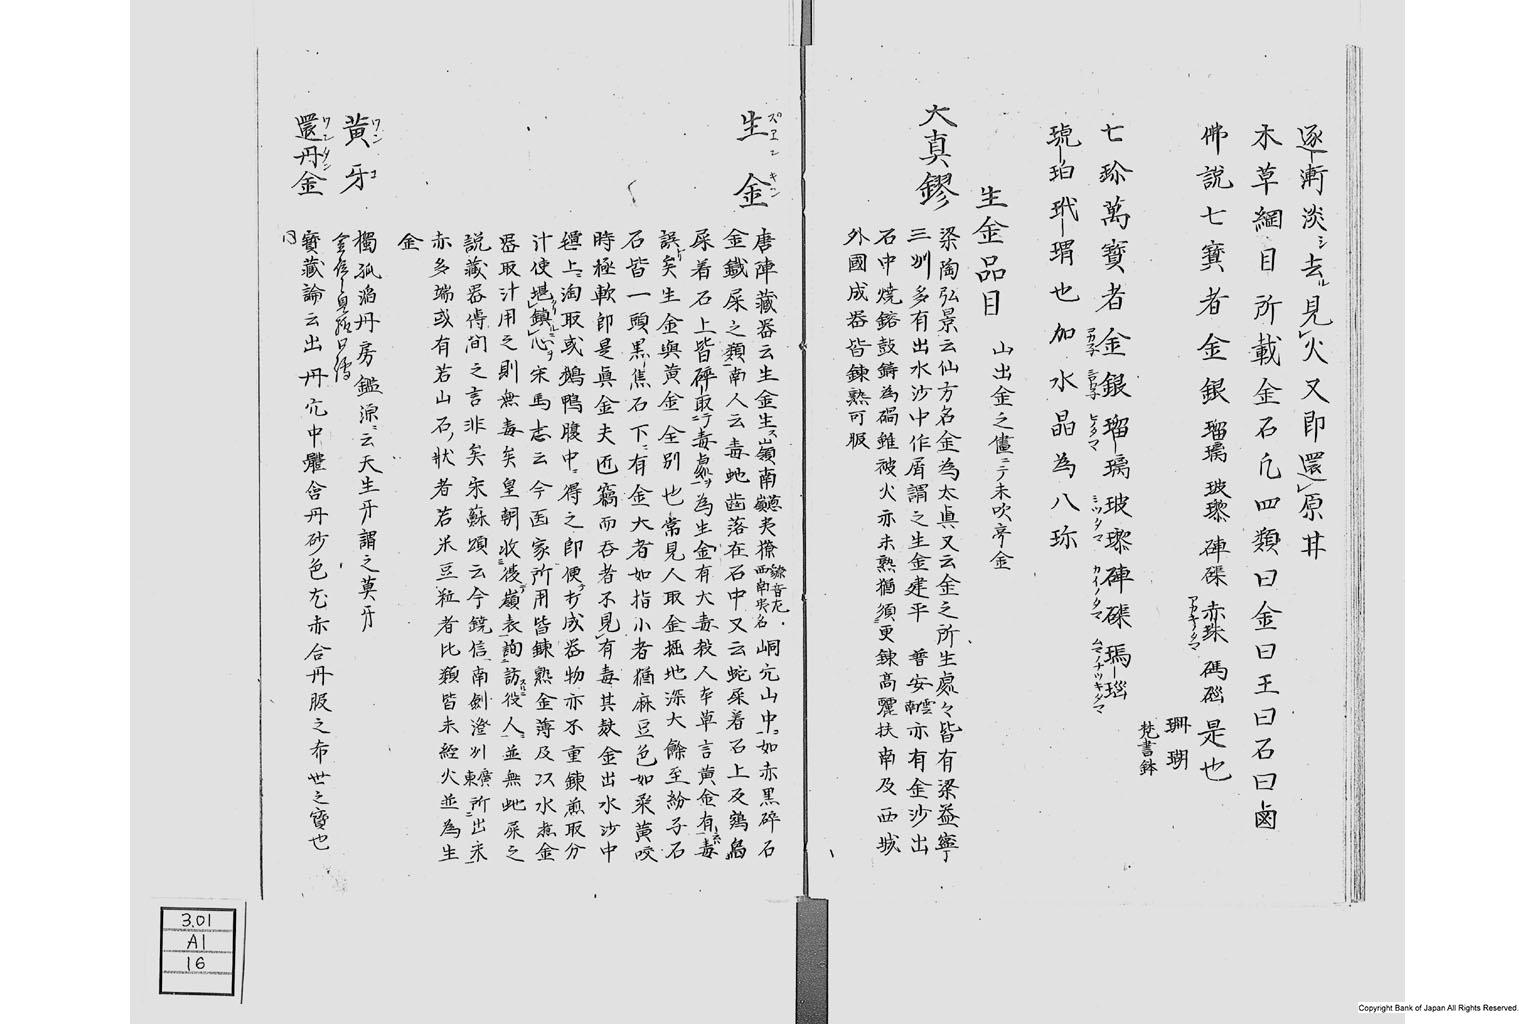 逐漸淡シ去ル見火又即還原丼
本草綱目所載金石凡四類曰金曰玉曰石曰鹵
佛説七寳者金銀瑠璃玻瓈硨磲赤珠碼碯是也
アカキタマ
珊瑚
梵書鉢
七珍萬寳者金銀瑠璃玻瓈硨磲瑪瑙
コガ子 シロカ子 ヒタマ ミツタマ カイノタマ ムマノナツキダマ
琥珀玳瑁也加水晶為八珎
生金品目 山出金之儘ニテ未吹亭金
大真鏐
梁陶弘景云仙方名金為太眞又云金之所生處々皆有梁益寧
三州多有出水沙中作屑謂之生金建平晉安南雲亦有金沙出
石中焼鎔鼓鑄為碢雖被火亦未熟猶須更錬高麗扶南及西域
外國成器皆錬熟可服
生金
ズヱンキン
唐陣藏器云生金生ス嶺南夷獠峒穴山中ニ如赤黒碎石
獠音尤西南夷名
金鐵屎之類南人云毒虵齒落在石中又云蛇屎着石上及鵄鳥
屎着石上皆碎取テ毒處ヲ為生金有大毒殺人本草言黄金有毒
誤矣生金與黄金全別也常見人取金掘地深大餘至紛子石
石皆一頭黒焦石下ニ有金大者如指小者猶麻豆色如桑黄咬
時極軟即是眞金夫匠竊而呑者不見有毒其麩金出水沙中
氊上ニ淘取或鵝鴨腹中ニ得之即便打成器物亦不重錬煎取分
汁使堪鎮心宋馬志云今醫家所用皆錬熟金薄及以水煮金
器取汁用之則無毒矣皇朝收彼嶺表詢訪彼人並無虵屎之
説藏器傳聞之言非矣宋蘇頌云今饒信南劍澄州所出
廣東
亦多端或有若山石ノ狀者若米豆粒者比類皆未經火並為生
金
黄牙
ワンコ
獨孤滔丹房鑑源ニ云天生牙謂之黄牙
還丹金
ワンタン
寳藏論云出丹穴中體含丹砂色尤赤合丹服之希世之寳也
3.01
A1
16
Copyright Bank of Japan All Rights Reserved.